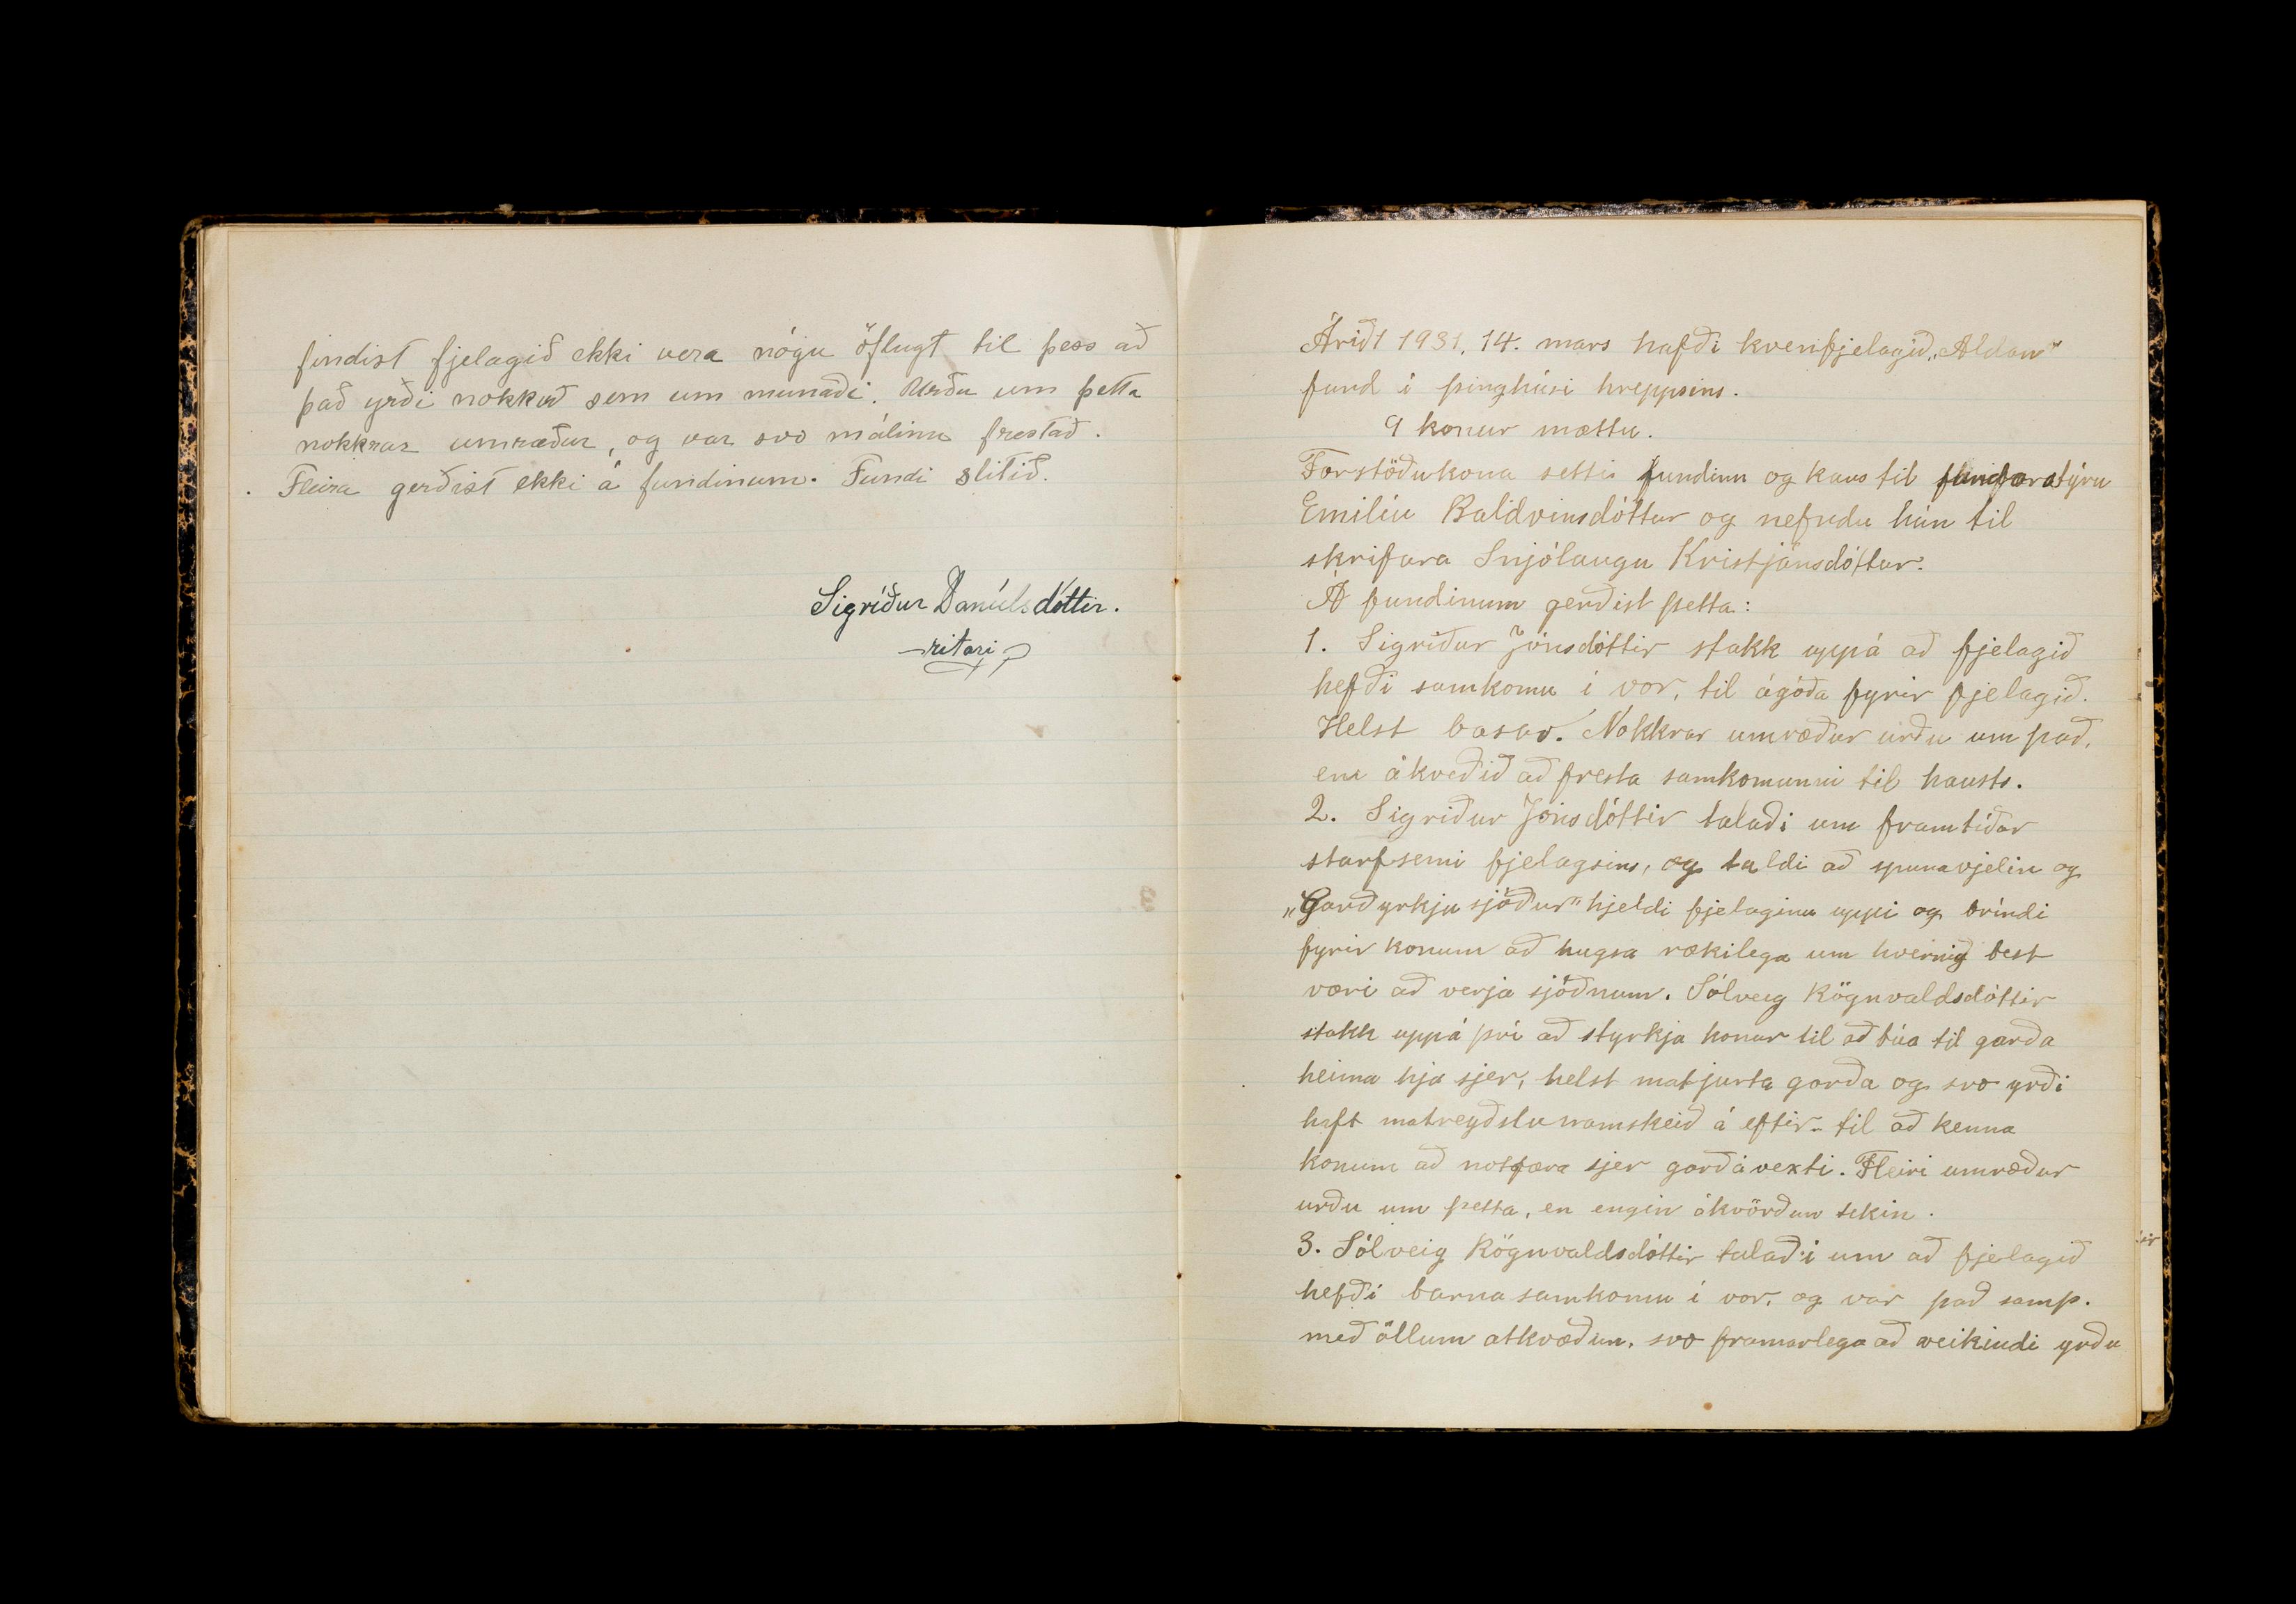 findist fjelagið ekki vera nógu öflugt til þess að
það yrði nokkuð sem um munaði. Urðu um þetta
nokkrar umræður, og var svo málinu frestað.
Fleira gerðist ekki á fundinum. Fundi slitið.
Sigríður Daníelsdóttir.
ritari
Árið 1931, 14. mars hafði kvenfjelagið „Aldan"
fund i þinghúsi hreppsins.
9 konur mættu.
Forstöðukona setti fundinn og kaus til fundarstýru
Emiliu Baldvinsdóttur og nefndu hún til
skrifara Snjólaugu Kristjánsdóttur.
Á fundinum gerðist þetta:
1. Sigriður Jónsdóttir stakk uppá að fjelagið
hefði samkomu i vor, til ágóða fyrir fjelagið.
Helst basar. Nokkrar umræður urðu um það,
en ákveðið að fresta samkomunni til hausts.
2. Sigriður Jónsdóttir talaði um framtíðar
starfsemi fjelagsins, og taldi að spunavjelin og
„Garðyrkju sjóður" hjeldi fjelaginu uppi og bríndi
fyrir konum að hugsa rækilega um hvernig best
væri að verja sjóðnum. Sólveig Rögnvaldsdóttir
stakk uppá því að styrkja konur til að búa til garða
heima hja sjer, helst matjurta garða og svo yrði
haft matreyðslunamskeið á eftir til að kenna
konum að notfæra sjer garðávexti. Fleiri umræður
urðu um þetta, en engin ákvörðun tekin.
3. Sólveig Rögnvaldsdóttir talaði um að fjelagið
hefði barnasamkomu i vor, og var það samþ.
með öllum atkvæðum, svo framarlega að veikindi yrðu